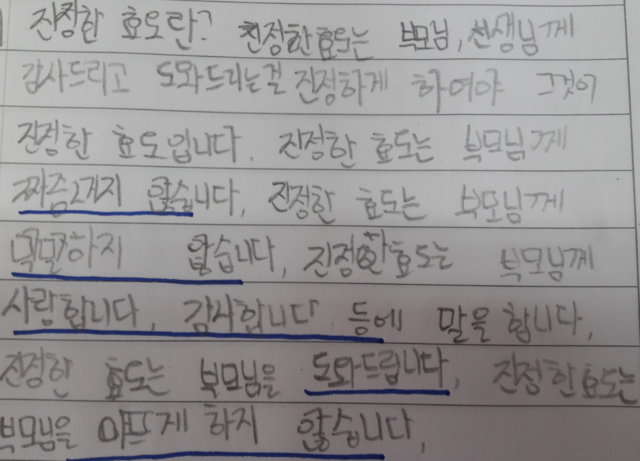 진정한 효도란? 진정한효도는 부모님, 선생님께
감사드리고 도와드리는걸 진정하게 하여야 그것이
진정한 효도입니다. 진정한 효도는 부모님께
짜증2거지 않습니다, 진정한 효도는 부모님께
하지 않습니다, 진정한효도는 부모님께
사랑합니다, 감사합니다 등에 말을 합니다,
진정한 효도는 부모님을 도와드립니다, 진정한효도는
부모님을 아프게 하지 않습니다,